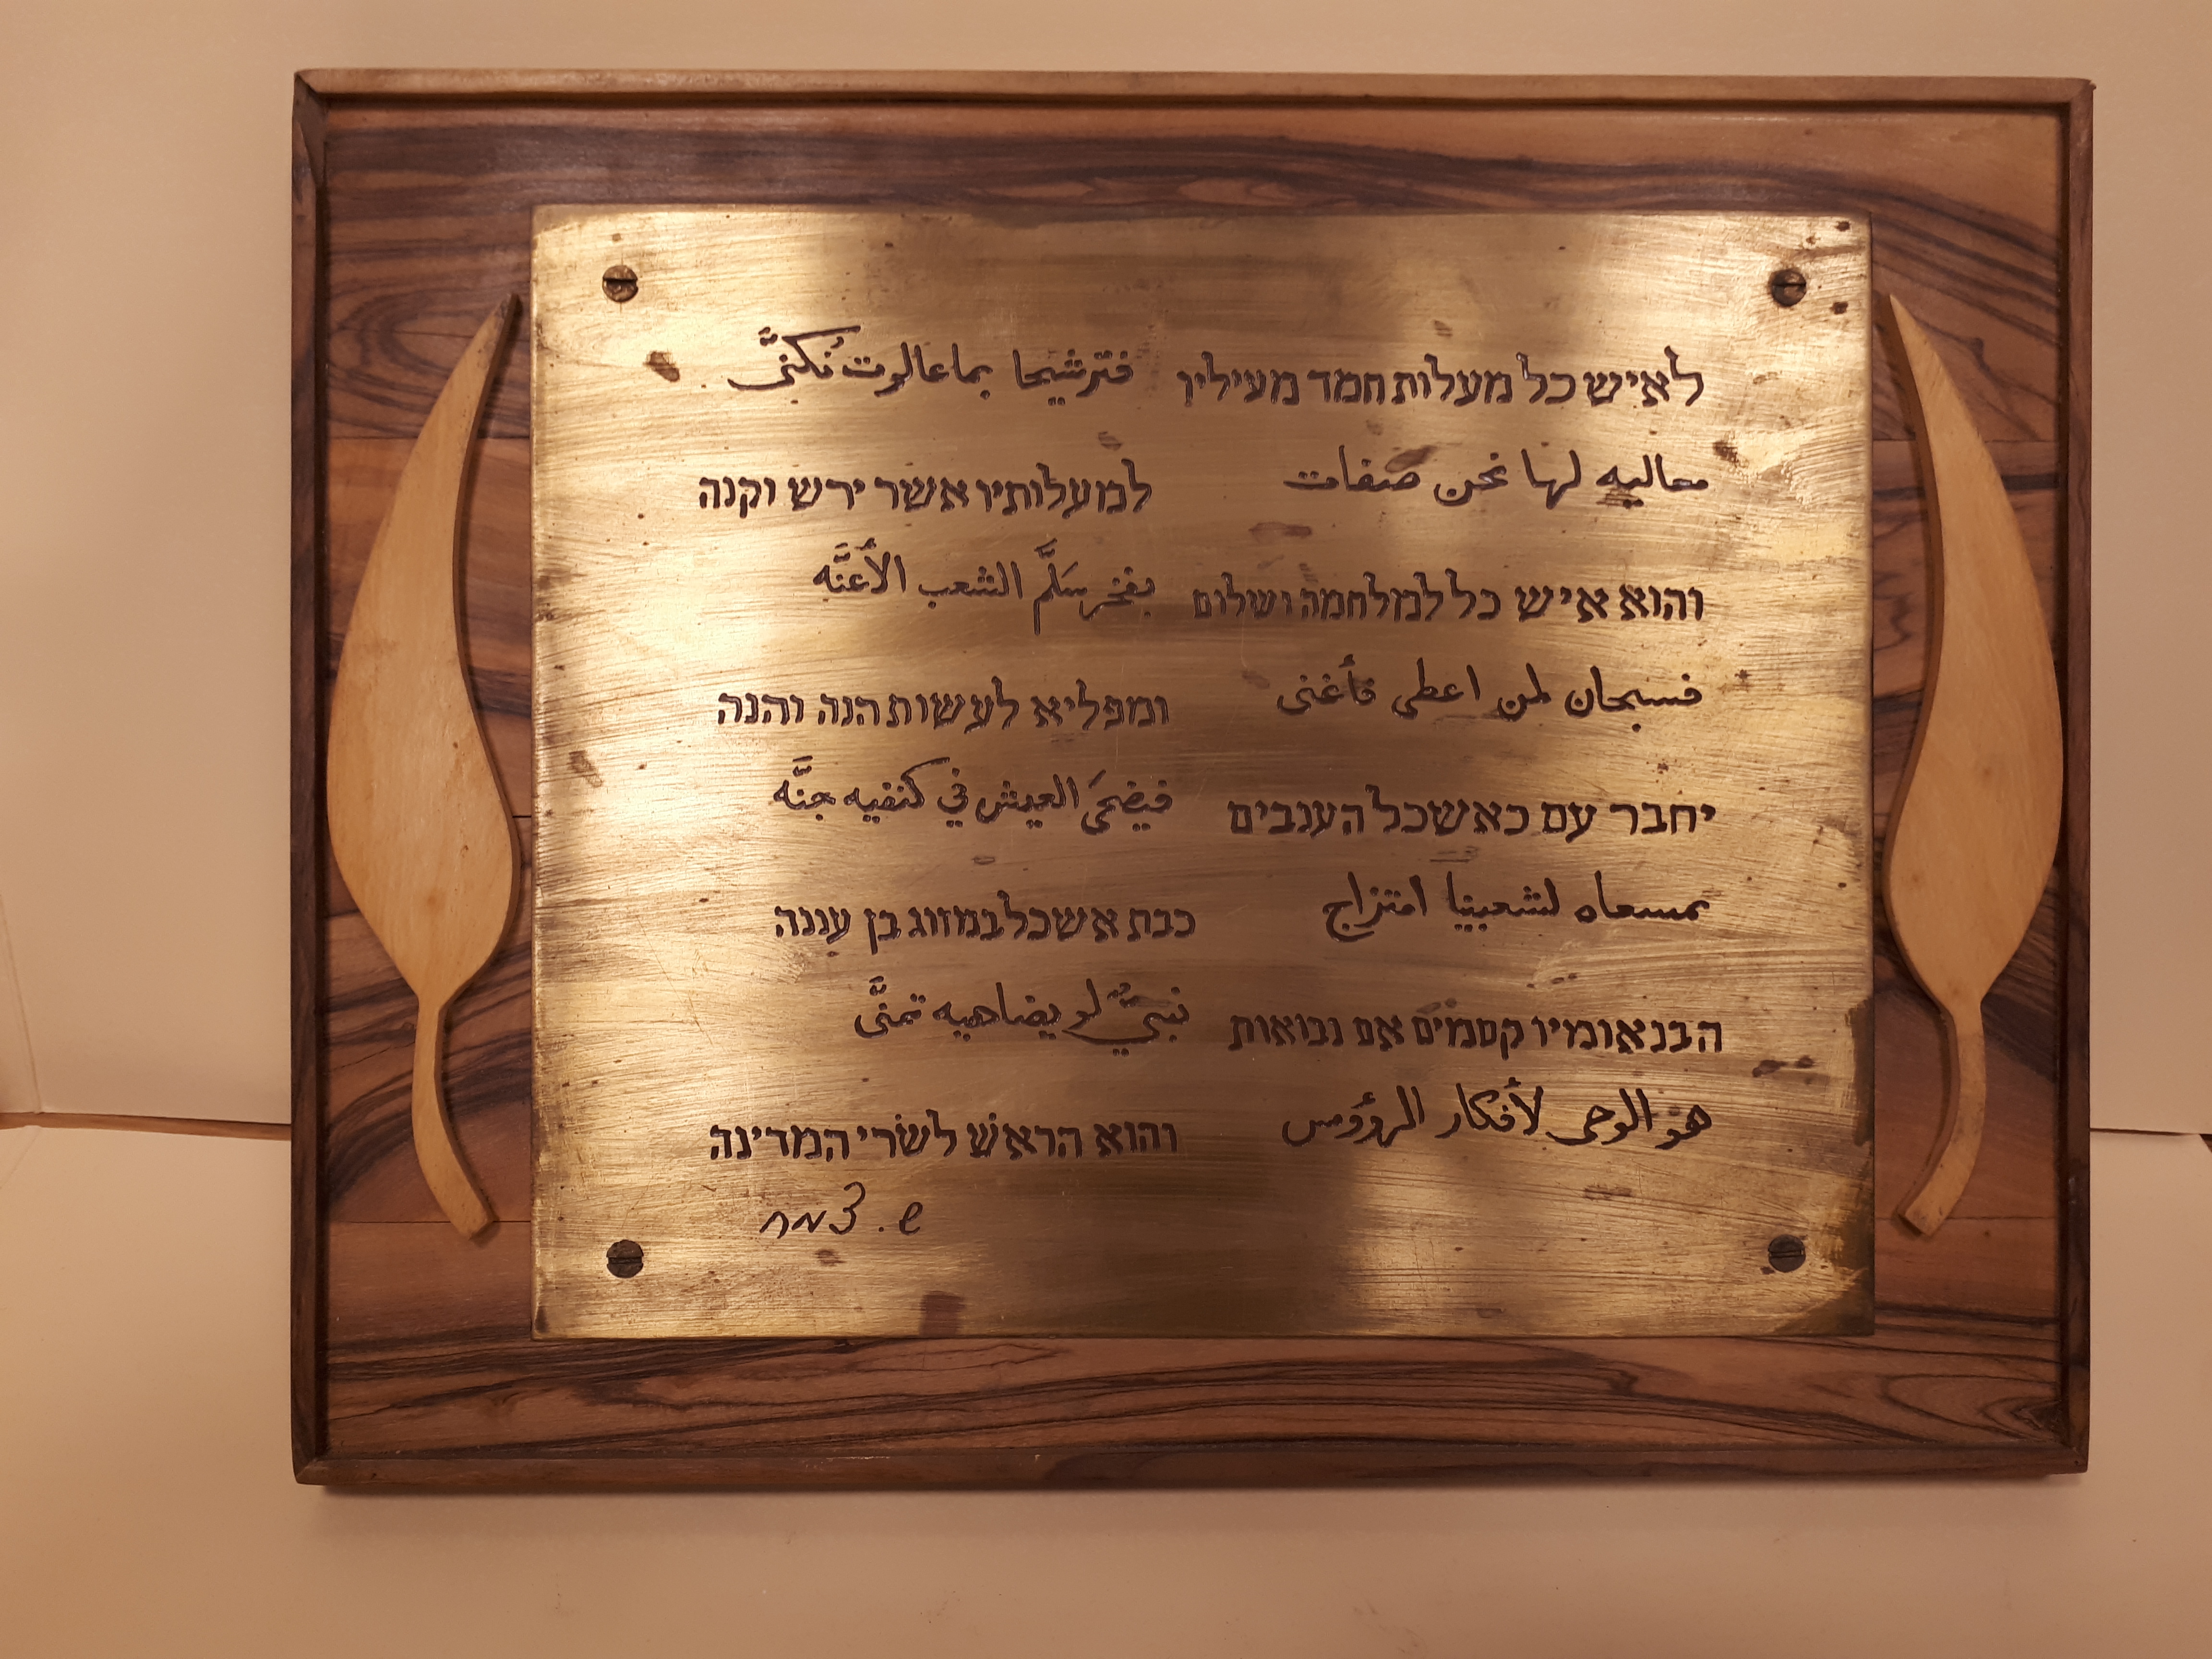 לאיש כל מעלות חמד מעילין فترشيحا بما عالوت تُكنَّى
معاليه لها نحن صنفات למעלותיו אשר ירש וקנה
והוא איש כל למלחמה ושלום بفخر سَلَّم الشعب الأَعنَّه
فسبحان لمن اعطى فأغنى ומפליא לעשות הנה והנה
יחבר עם כאשכל הענבים فيضحىَ العيش في كنفيه جنَّه
بمسعاه لشعبينا امتزاج כבת אשכל במזווג בן עננה
הבנאומיו קסמים אם נבואות نبيٌّ لو يضاهيه تمنَّى
هو الوحى لأفكار الرؤوس והוא הראש לשרי המדינה
ש. צמח